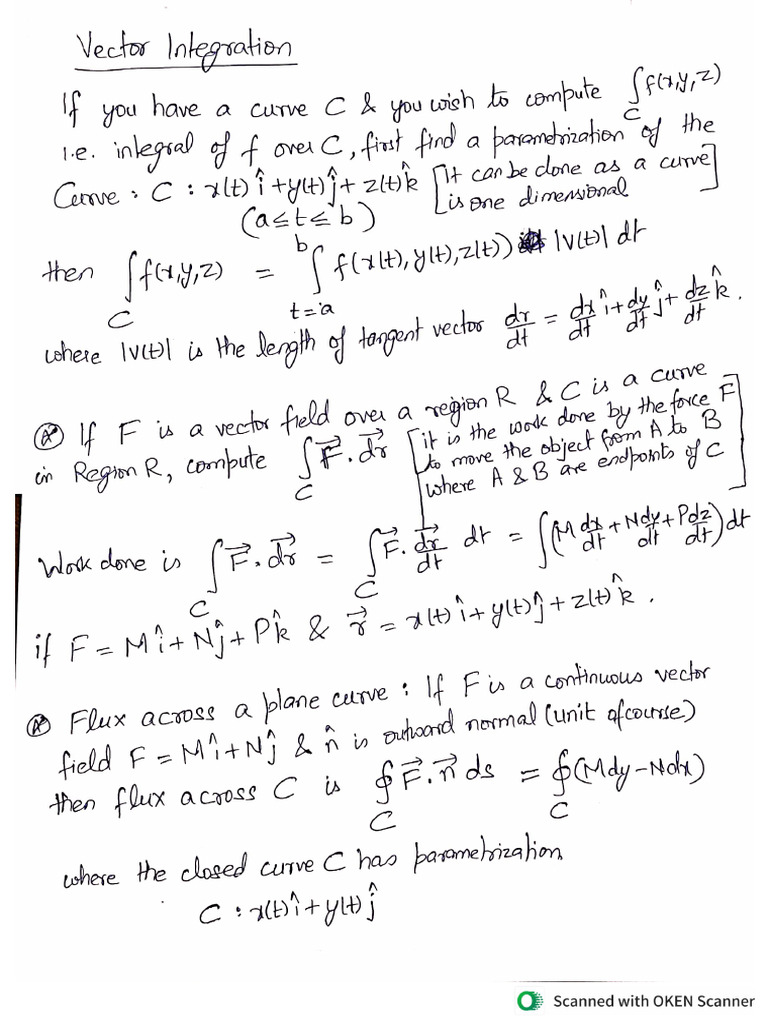 Vector Integration
If you have a curve C & you wish to compute ∫_C f(x,y,z)
i.e. integral of f over C, first find a parametrization of the
Curve : C : x(t) î + y(t) ĵ + z(t) k̂ [It can be done as a curve
(a ≤ t ≤ b) is one dimensional]
then ∫_C f(x,y,z) = ∫_{t=a}^{b} f(x(t), y(t), z(t)) |v(t)| dt
where |v(t)| is the length of tangent vector dr/dt = dx/dt î + dy/dt ĵ + dz/dt k̂ .
If F is a vector field over a region R & C is a curve
in Region R, compute ∫_C F⃗ . dr⃗ [it is the work done by the force F
to move the object from A to B
where A & B are endpoints of C]
Work done is ∫_C F⃗ . dr⃗ = ∫_C F⃗ . dr⃗/dt dt = ∫(M dx/dt + N dy/dt + P dz/dt) dt
if F = M î + N ĵ + P k̂ & r⃗ = x(t) î + y(t) ĵ + z(t) k̂ .
Flux across a plane curve : If F is a continuous vector
field F = M î + N ĵ & n̂ is outward normal (unit ofcourse)
then flux across C is ∮_C F⃗ . n⃗ ds = ∮_C (Mdy - Ndx)
where the closed curve C has parametrization
C : x(t) î + y(t) ĵ
Scanned with OKEN Scanner